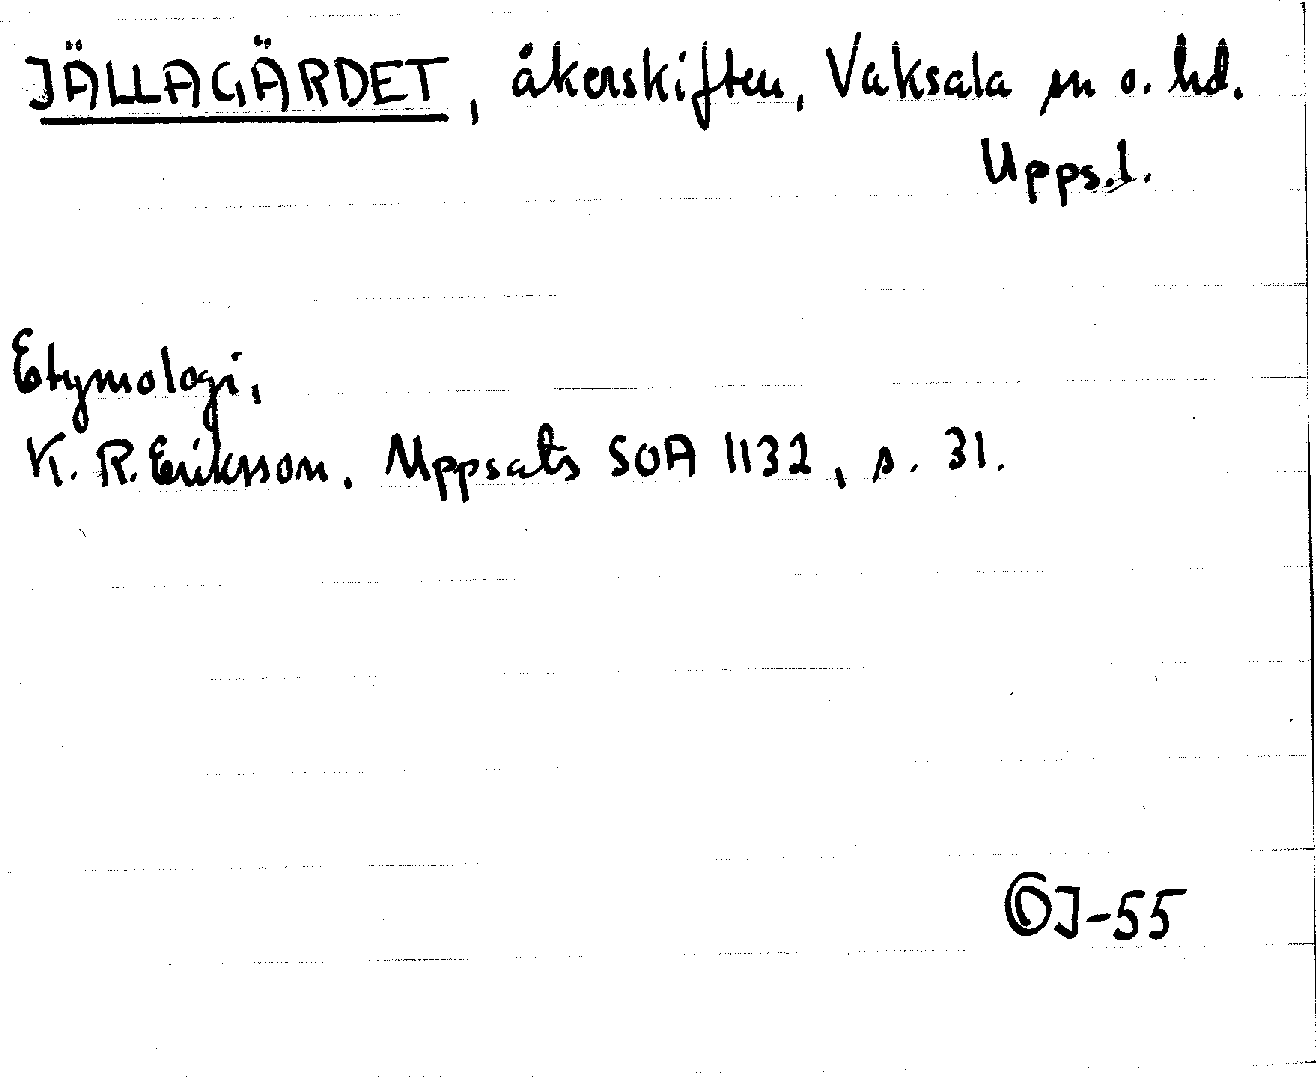 JÄLLAGÄRDET, åkerskiften, Vaksala sn o. hd.
Upps.l.
Etymologi,
K. R. Eriksson. Uppsats SOA 1132, s. 31.
J-55